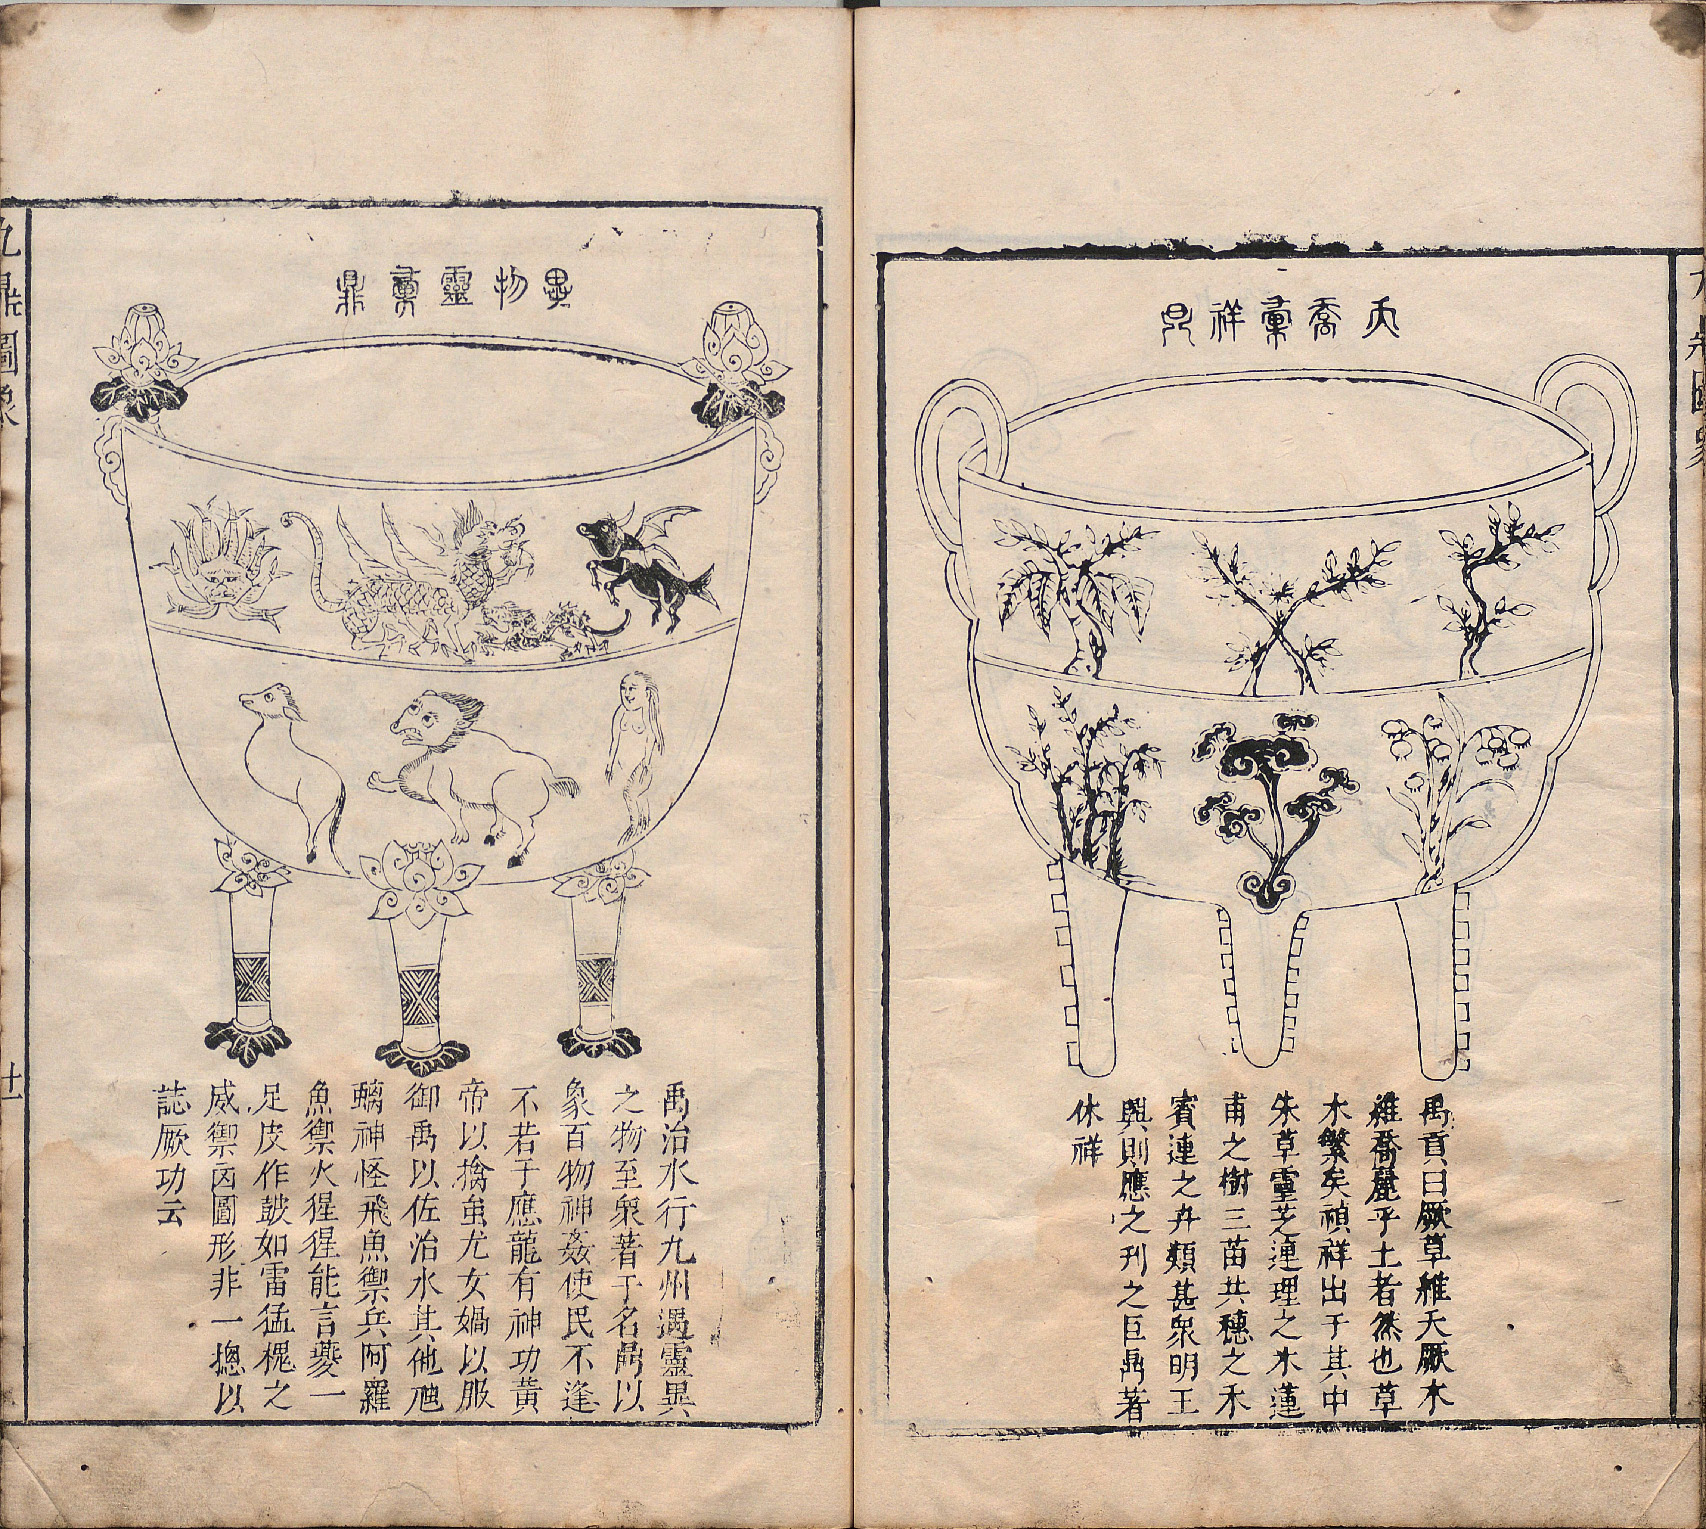 九鼎圖象
夭喬彙祥鼎
禹貢曰厥草維夭厥木
維喬麗乎土者然也草
木繁矣禎祥出于其中
朱草靈芝連理之木蓮
甫之樹三苗共穗之禾
賓連之卉類甚衆明王
興則應之刊之巨鼎著
休祥
異物靈彙鼎
禹治水行九州遇靈異
之物至衆著于名鼎以
象百物神姦使民不逢
不若于應龍有神功黃
帝以擒蚩尤女媧以服
御禹以佐治水其他虺
螭神怪飛魚禦兵阿羅
魚禦火猩猩能言夔一
足皮作鼓如雷猛槐之
威禦凶圖形非一摠以
誌厥功云
九鼎圖象
十一